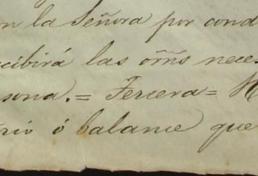 la Señora por cond
cibirá las orñs nece
sona.= Tercera=
rio ó balance que